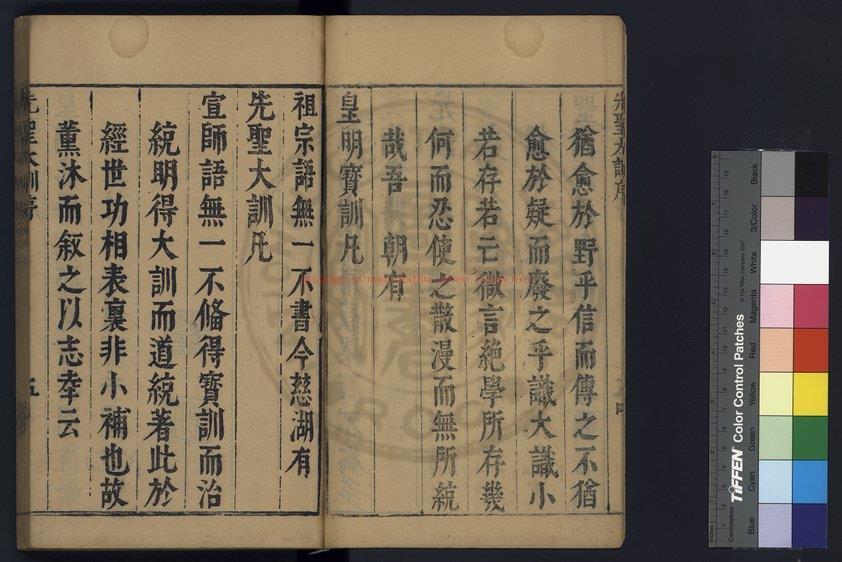 先聖大訓序
猶愈於野乎信而傳之不猶
愈於疑而廢之乎識大識小
若存若亡微言絶學所存幾
何而忍使之散漫而無所統
哉吾 朝有
皇明寶訓凡
祖宗語無一不書今慈湖有
先聖大訓凡
宣師語無一不偹得寶訓而治
統明得大訓而道統著此於
經世功相表裏非小補也故
薫沐而叙之以志幸云
先聖大訓序
五
TIFFEN Color Control Patches
© The Tiffen Company, 2007
Centimetres
Inches
Blue
Cyan
Green
Yellow
Red
Magenta
White
3/Color
Black